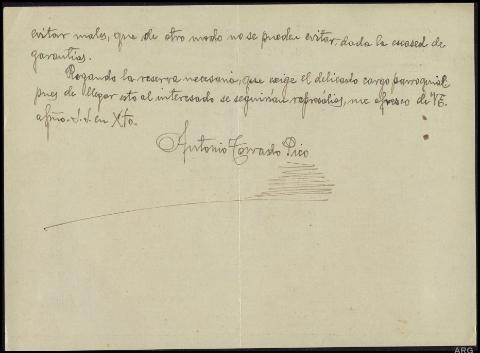 evitar males, que de otro modo no se pueden evitar, dada la escased de
garantías.
Rogando la reserva necesaria, que exige el delicado cargo parroquial
pues de llegar esto al interesado se seguirían represálias, me ofresco de VE.
afmo. s.s. en Xto.
Antonio Pico
ARG